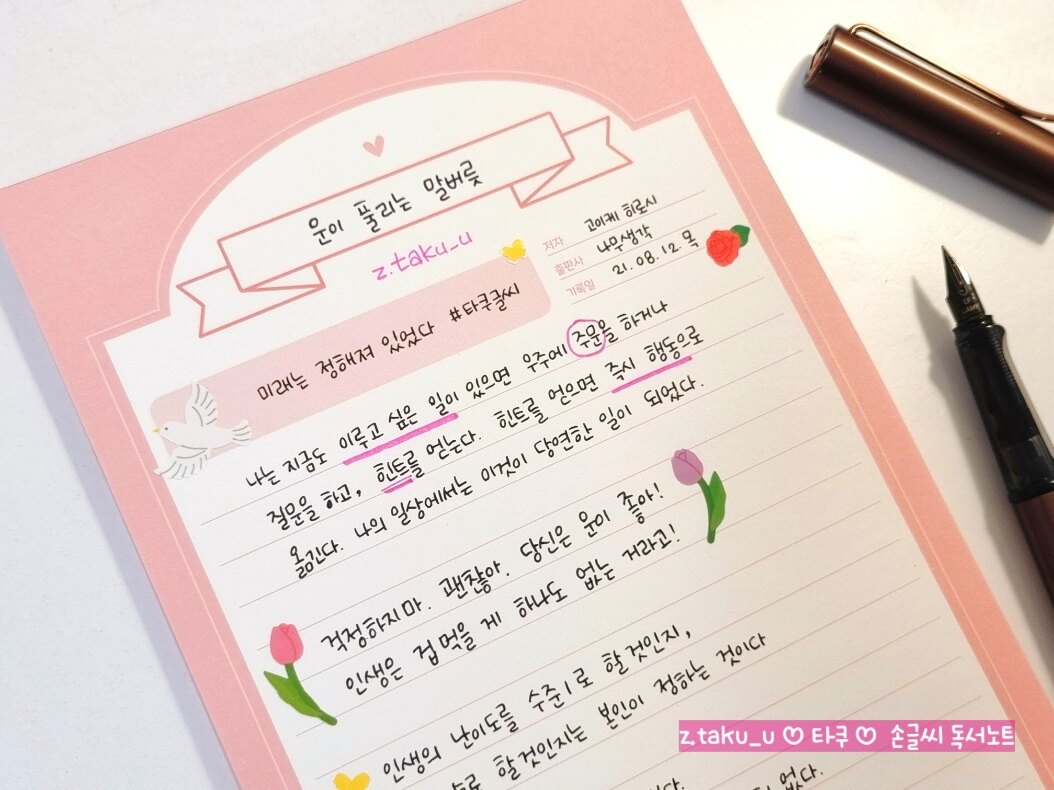 운이 풀리는 말버릇
z.taku_u
저자 고이케 히로시
출판사 나무생각
기록일 21.08.12.목
미래는 정해져 있었다 #타쿠글씨
나는 지금도 이루고 싶은 일이 있으면 우주에 주문을 하거나
질문을 하고, 힌트를 얻는다. 힌트를 얻으면 즉시 행동으로
옮긴다. 나의 일상에서는 이것이 당연한 일이 되었다.
걱정하지마. 괜찮아. 당신은 운이 좋아!
인생은 겁먹을 게 하나도 없는 거라고!
인생의 난이도를 수준1로 할것인지,
로 할것인지는 본인이 정하는 것이다
없다.
z.taku_u ♡ 타쿠 ♡ 손글씨 독서노트